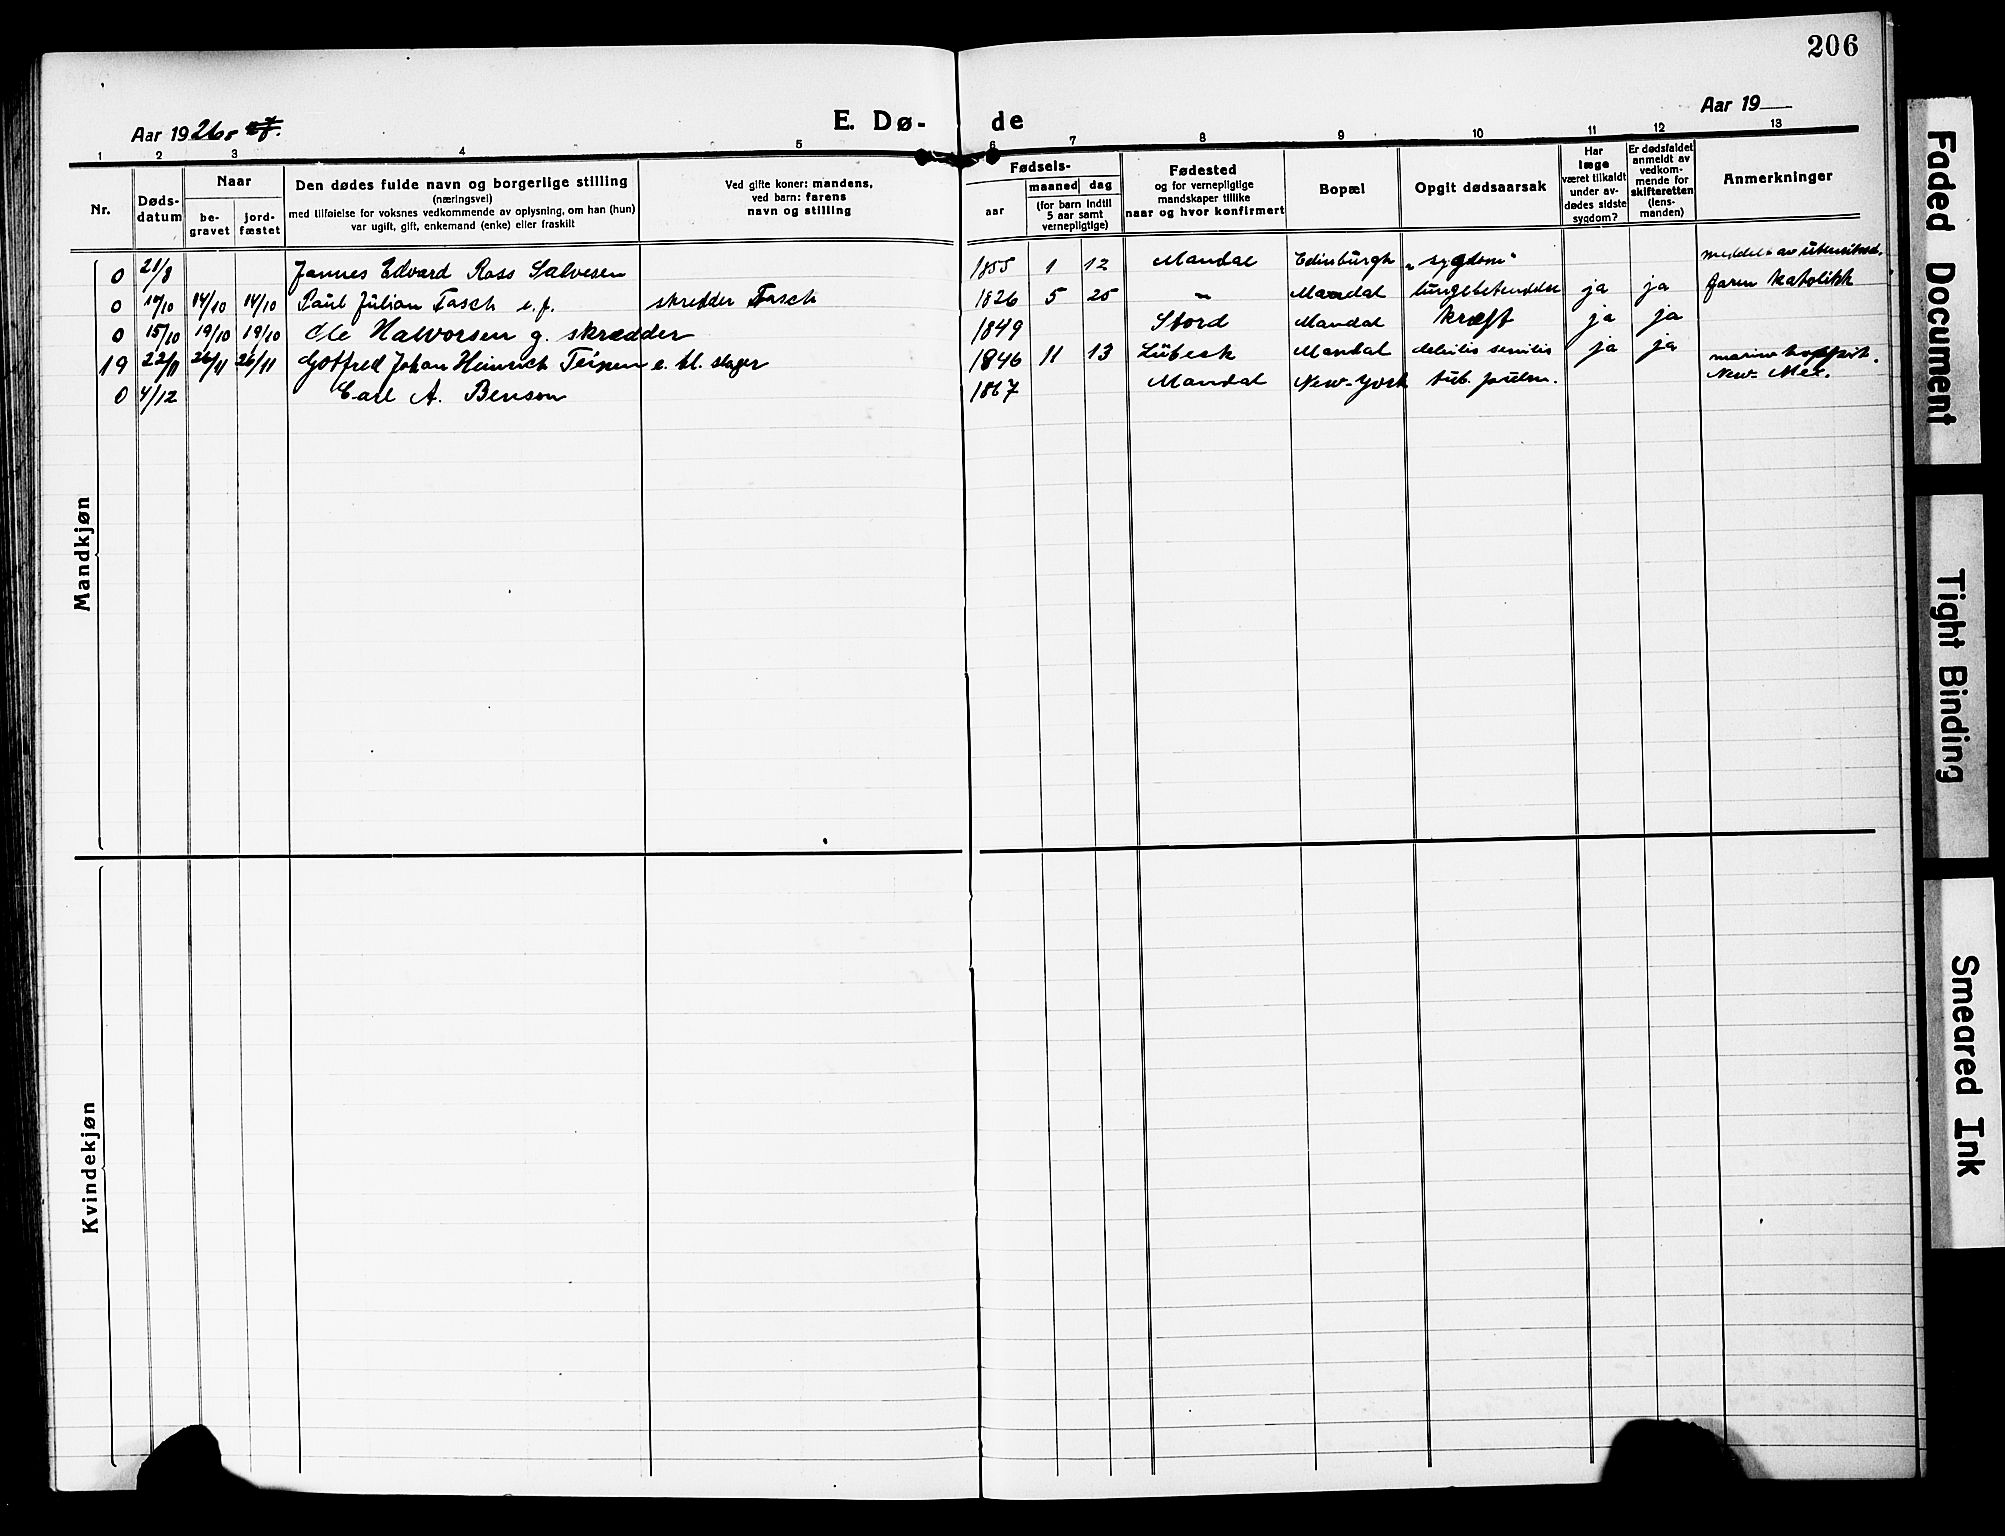 206
Aar 1926.
E. Dø-
de
Aar 19
1 2 3 4 5 6 7 8 9 10 11 12 13
Nr.
Døds-
datum
Naar
be-
gravet
jord-
fæstet
Den dødes fulde navn og borgerlige stilling
(næringsvei)
med tilføielse for voksnes vedkommende av oplysning, om han (hun)
var ugift, gift, enkemand (enke) eller fraskilt
Ved gifte koner: mandens,
ved barn: farens
navn og stilling
Fødsels-
aar
maaned dag
(for barn indtil
5 aar samt
vernepligtige)
Fødested
og for vernepligtige
mandskaper tillike
naar og hvor konfirmert
Bopæl
Opgit dødsaarsak
Har
læge
været tilkaldt
under av-
dødes sidste
sygdom?
Er dødsfaldet
anmeldt av
vedkom-
mende for
skifteretten
(lens-
manden)
Anmerkninger
Mandkjøn
0 21/8 James Edvard Ross Salvesen 1855 1 12 Mandal Edinburgh "sygdom"
0 10/10 14/10 14/10 Paul Julian Tasch e.f. skredder Tasch 1826 5 25 " Mandal lungebetendelse ja ja faren katolikk
0 15/10 19/10 19/10 Ole Halvorsen g. skrædder 1849 Stord Mandal kræft ja ja
19 22/11 26/11 26/11 Gotfred Johan Heinrich e. bl. slager 1846 11 13 Lübeck Mandal debilis senilis ja ja
0 4/12 Carl A. Benson 1867 Mandal New-York tub. pulm. New-Mex.
Kvindekjøn
Faded Document
Tight Binding
Smeared Ink